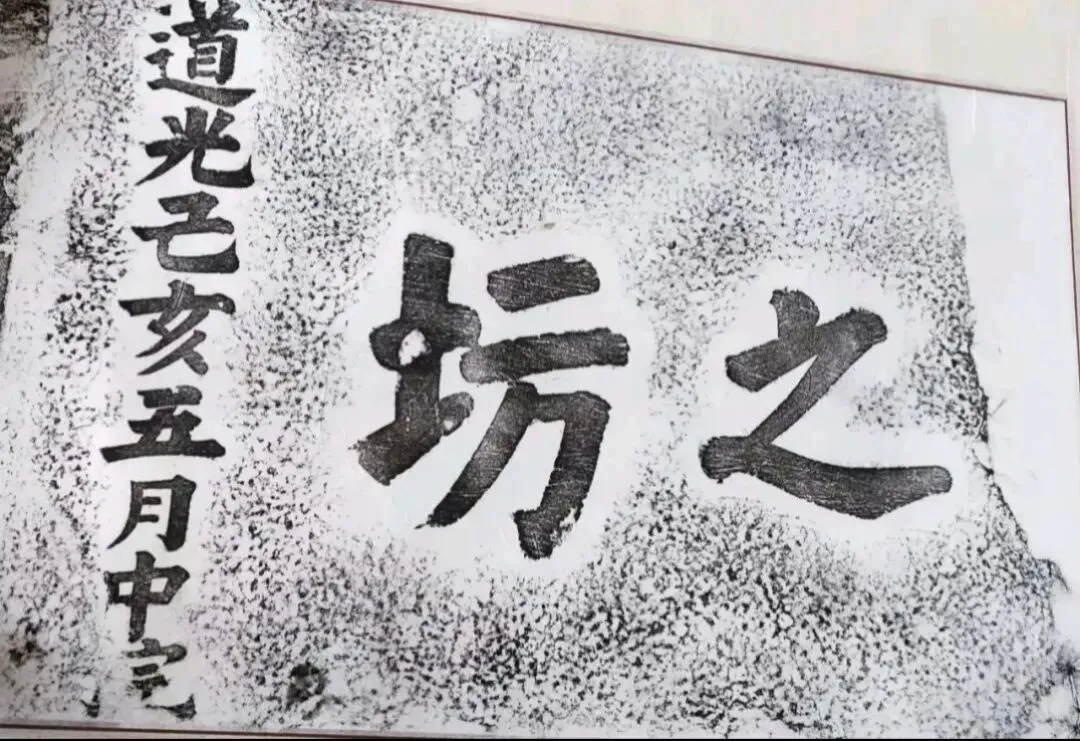 之坊
道光己亥五月中完